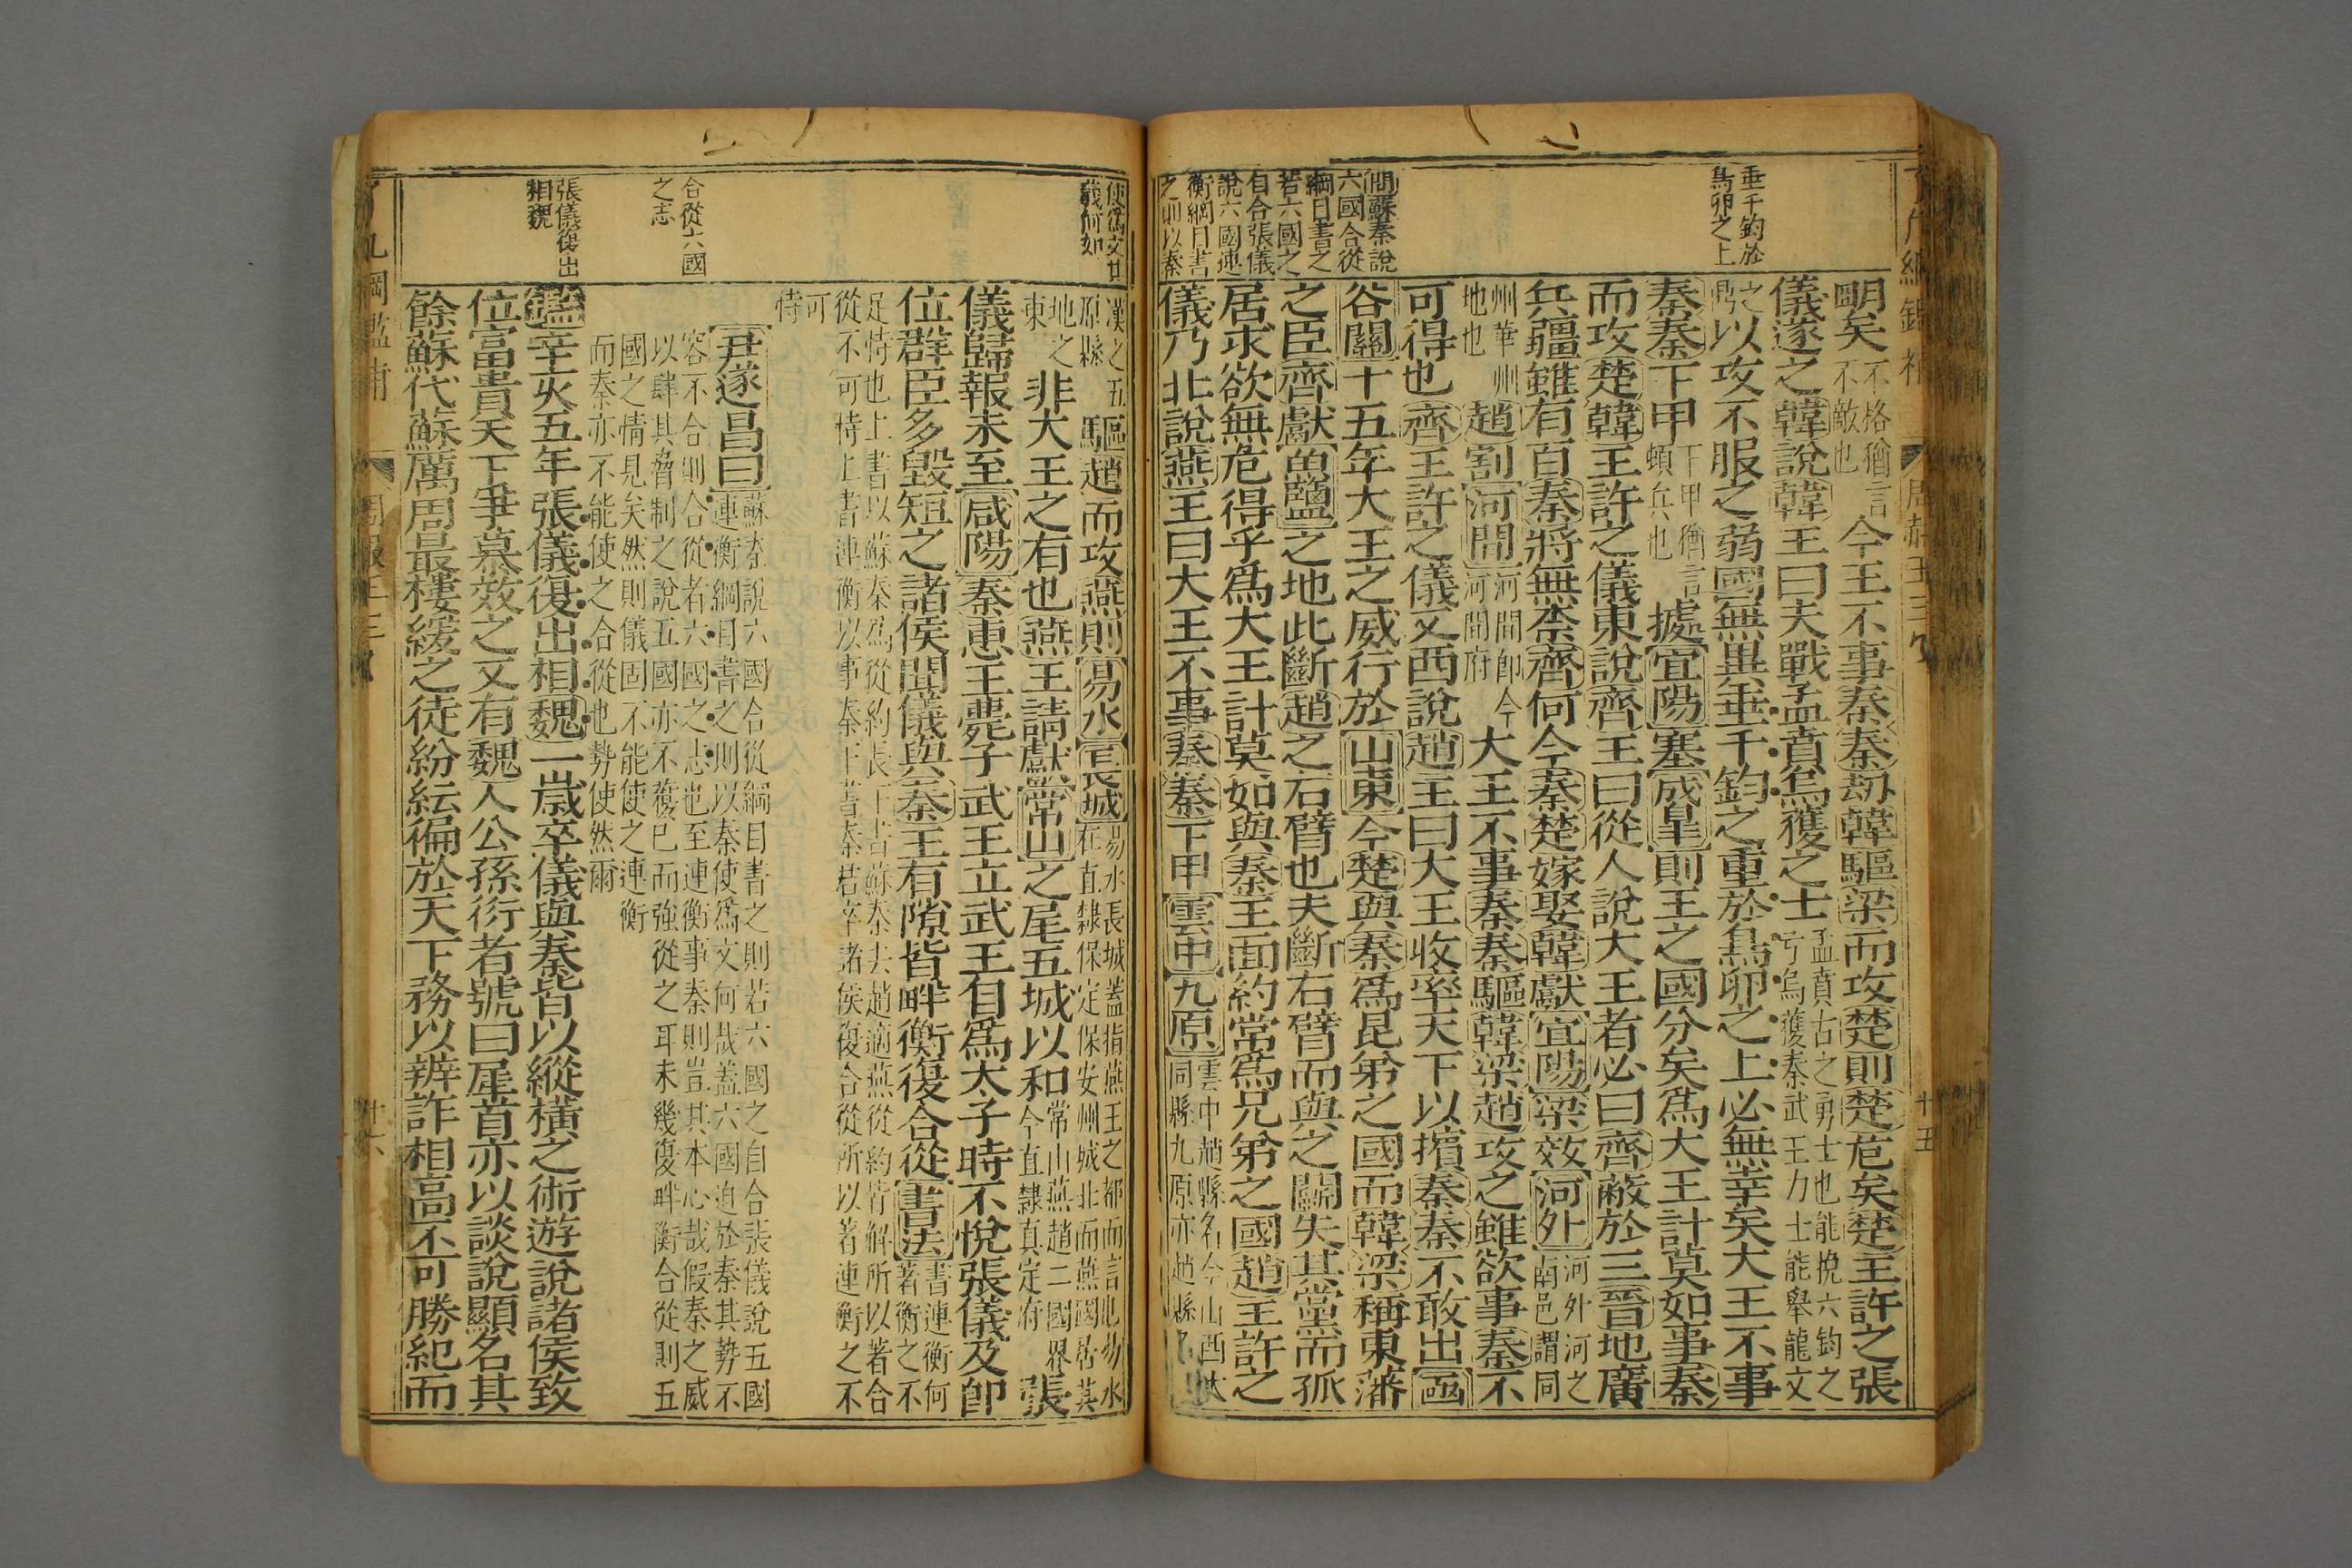 垂千鈞於
鳥卵之上
問蘇秦說
六國合從
綱目書之
若六國之
自合張儀
說六國連
衡綱目書
之則以秦
明矣不格猶言不敵也今王不事秦秦劫韓驅梁而攻楚則楚危矣楚王許之張
儀遂之韓說韓王曰夫戰孟賁烏獲之士孟賁古之勇士也能挽六鈞之弓烏獲秦武王力士能舉龍文
之鼎以攻不服之弱國無異垂千鈞之重於鳥卵之上必無幸矣大王不事
秦秦下甲下甲猶言頓兵也據宜陽塞成皐則王之國分矣爲大王計莫如事秦
而攻楚韓王許之儀東說齊王曰從人說大王者必曰齊蔽於三晉地廣
兵彊雖有百秦將無柰齊何今秦楚嫁娶韓獻宜陽梁效河外河外河之南邑謂同
州華州地也趙割河間河間卽今河間府大王不事秦秦驅韓梁趙攻之雖欲事秦不
可得也齊王許之儀又西說趙王曰大王收率天下以擯秦秦不敢出函
谷關十五年大王之威行於山東今楚與秦爲昆弟之國而韓梁稱東藩
之臣齊獻魚鹽之地此斷趙之右臂也夫斷右臂而與之鬬失其黨而孤
居求欲無危得乎爲大王計莫如與秦王面約常爲兄弟之國趙王許之
儀乃北說燕王曰大王不事秦秦下甲雲中九原雲中趙縣名今山西大同縣九原亦趙縣
十五
使爲文其
義何如
合從六國
之志
張儀復出
相魏
漢之五原縣驅趙而攻燕則易水長城易水長城蓋指燕王之都而言也易水在直隸保定保安州城北而燕國居其
地之東非大王之有也燕王請獻常山之尾五城以和常山燕趙二國界今直隸真定府張
儀歸報未至咸陽秦惠王薨子武王立武王自爲太子時不悅張儀及卽
位群臣多毀短之諸侯聞儀與秦王有隙皆畔衡復合從書法書連衡何著衡之不
足恃也上書以蘇秦爲從約長下書蘇秦去趙適燕從約皆解所以著合
從不可恃上書連衡以事秦下書秦君卒諸侯復合從所以著連衡之不
可
恃
尹遂昌曰蘇秦說六國合從綱目書之則若六國之自合張儀說五國
連衡綱目書之則以秦使爲文何哉蓋六國迫於秦其勢不
容不合則合從者六國之志也至連衡事秦則豈其本心哉假秦之威
以肆其脅制之說五國亦不獲已而強從之耳未幾復畔衡合從則五
國之情見矣然則儀固不能使之連衡
而秦亦不能使之合從也勢使然爾
鑑辛亥五年張儀復出相魏一歲卒儀與秦皆以縱橫之術遊說諸侯致
位富貴天下爭慕效之又有魏人公孫衍者號曰犀首亦以談說顯名其
餘蘇代蘇厲周最樓緩之徒紛紜徧於天下務以辨詐相高不可勝紀而
十六